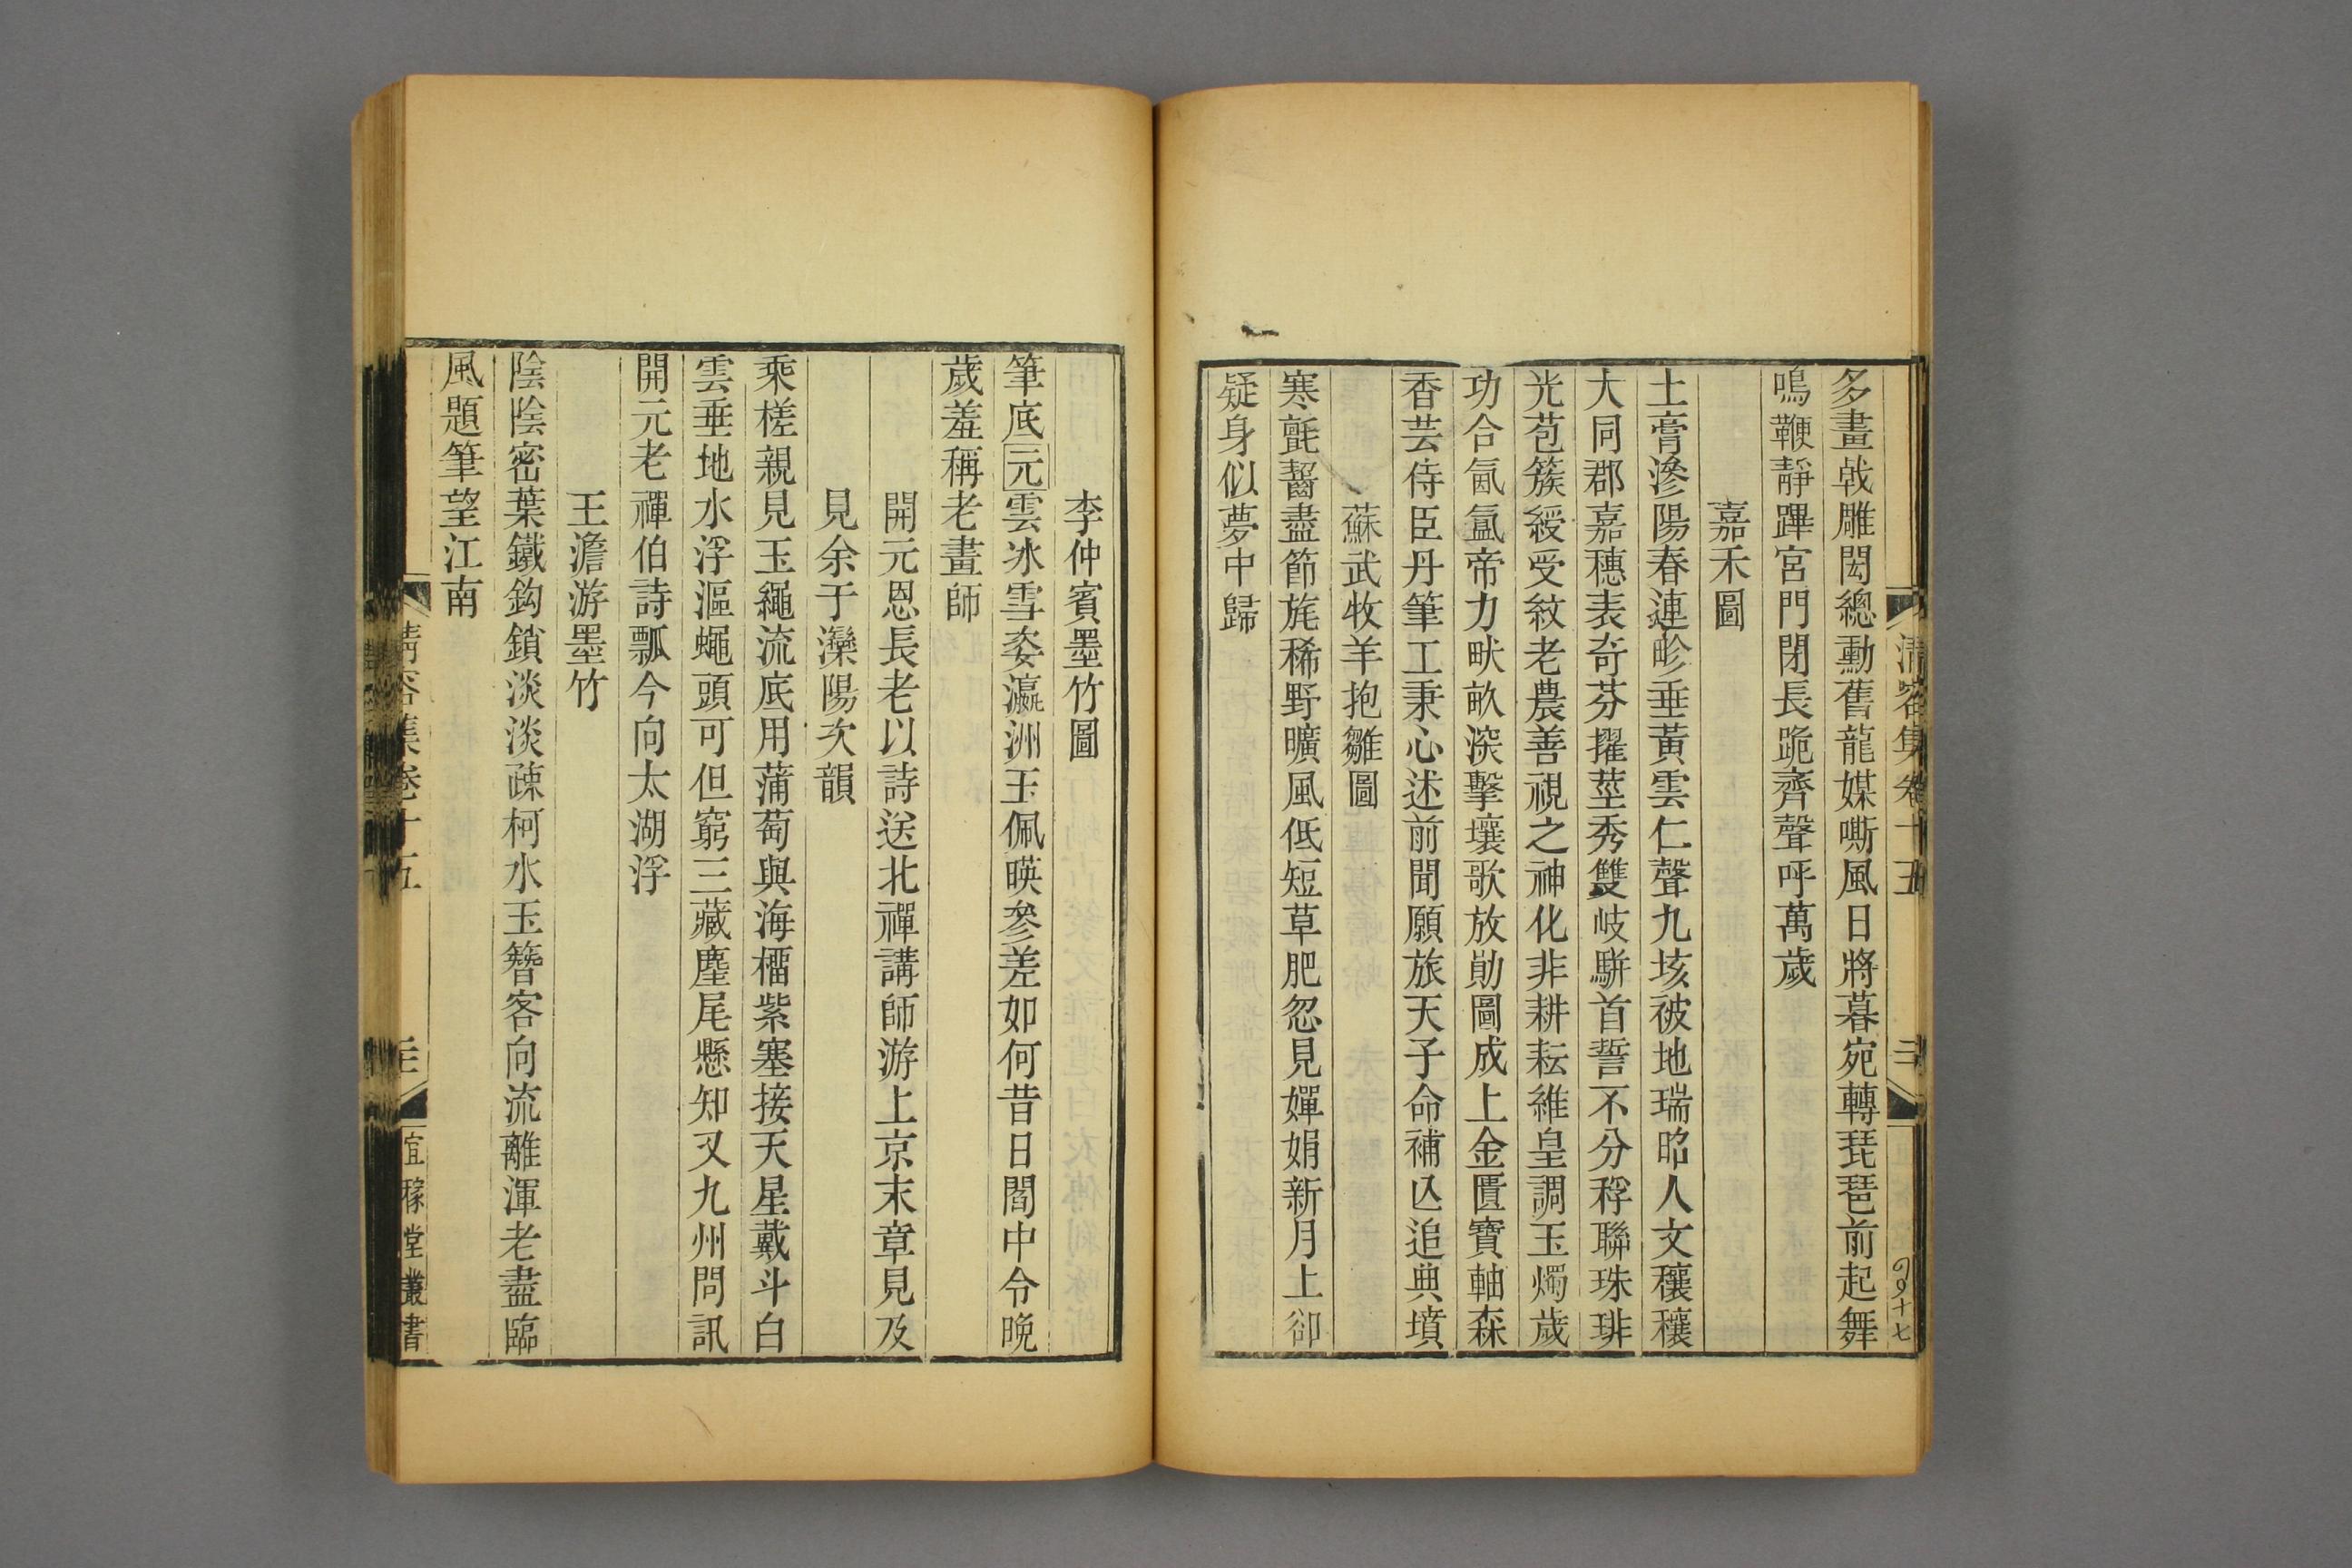 多畫戟雕閎總勳舊龍媒嘶風日將暮宛轉琵琶前起舞
鳴鞭靜蹕宮門閉長跪齊聲呼萬歲
嘉禾圖
土膏滲陽春連畛垂黃雲仁聲九垓被地瑞昭人文穰穰
大同郡嘉穗表奇芬擢莖秀雙岐駢首誓不分稃聯珠琲
光苞簇綬受紋老農善視之神化非耕耘維皇調玉燭歲
功合氤氳帝力畎畝深擊壤歌放勛圖成上金匱寶軸森
香芸侍臣丹筆工秉心述前聞願旅天子命補亾追典墳
蘇武牧羊抱雛圖
寒氈齧盡節旄稀野曠風低短草肥忽見嬋娟新月上卻
疑身似夢中歸
清容集卷十五
二
李仲賓墨竹圖
筆底元雲冰雪姿瀛洲玉佩暎參差如何昔日閻中令晚
歲羞稱老畫師
開元恩長老以詩送北禪講師游上京末章見及
見余于灤陽次韻
乘槎親見玉繩流底用蒲萄與海榴紫塞接天星戴斗白
雲垂地水浮漚蠅頭可但窮三藏麈尾懸知又九州問訊
開元老禪伯詩瓢今向太湖浮
王澹游墨竹
陰陰密葉鐵鈎鎖淡淡疎柯水玉簪客向流離渾老盡臨
風題筆望江南
清容集卷十五
宜稼堂叢書